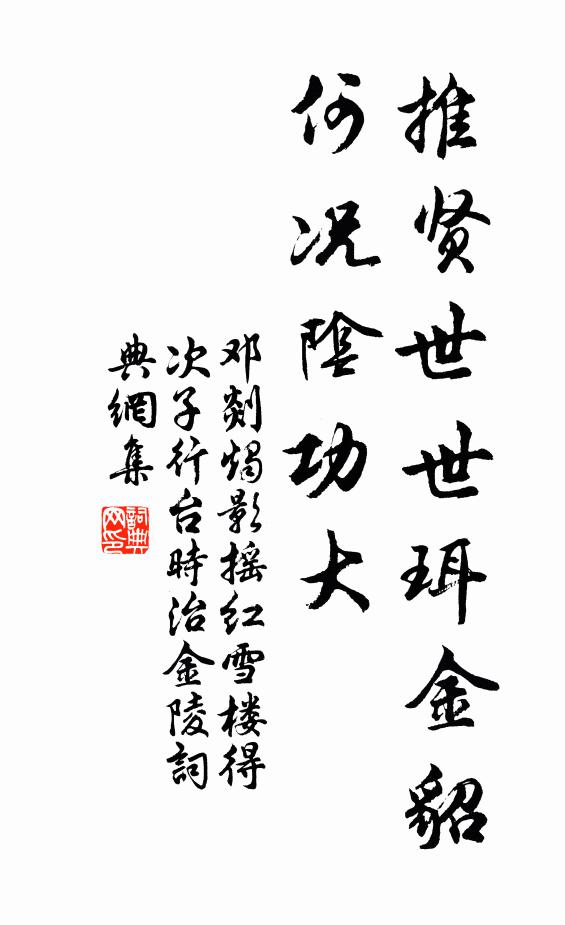 推贤世世珥金貂
何况陰功大
邓剡燭影摇红雪楼得
次子行台時治金陵詞
典網集
詞典
网印